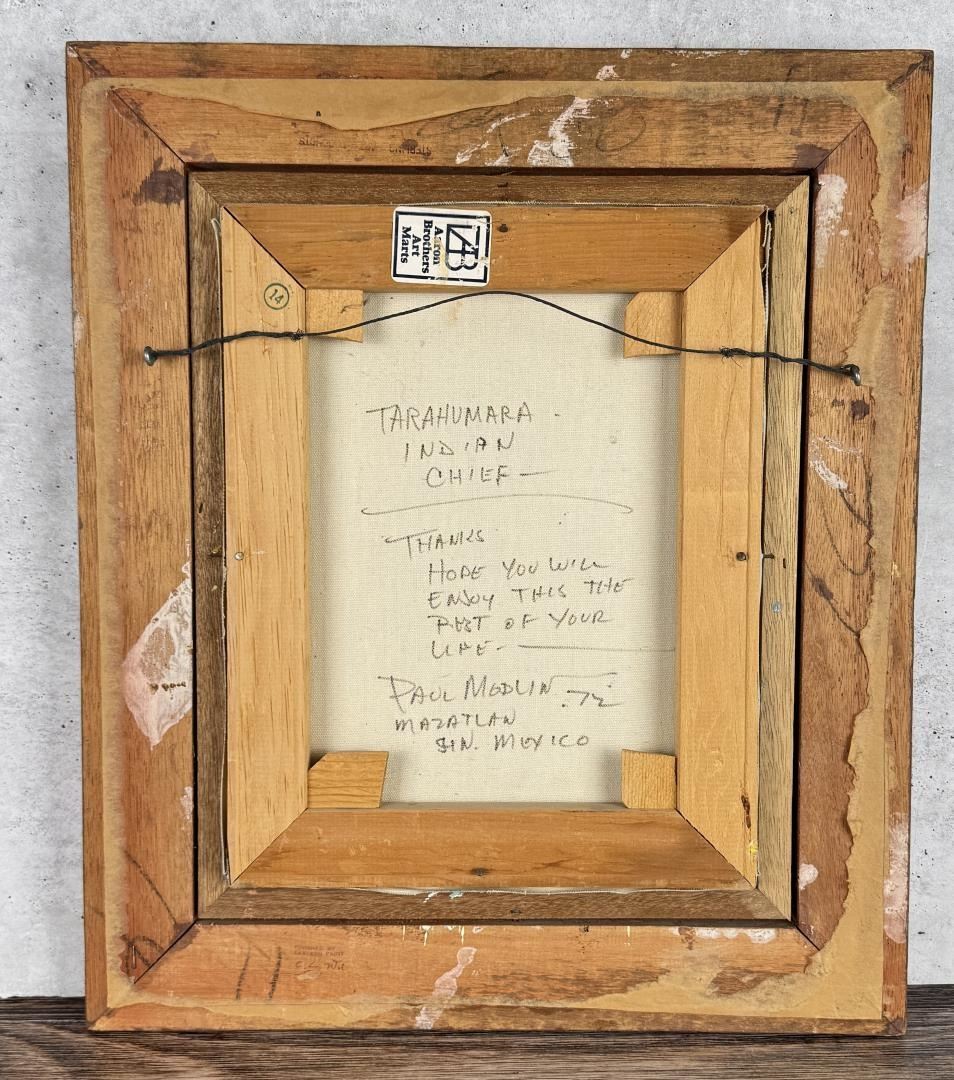 Aaron
Brothers
Art
Marts
14
TARAHUMARA -
INDIAN
CHIEF —
THANKS
HOPE YOU WILL
ENJOY THIS THE
REST OF YOUR
LIFE - —
PAUL MODLIN
MAZATLAN
SIN. MEXICO